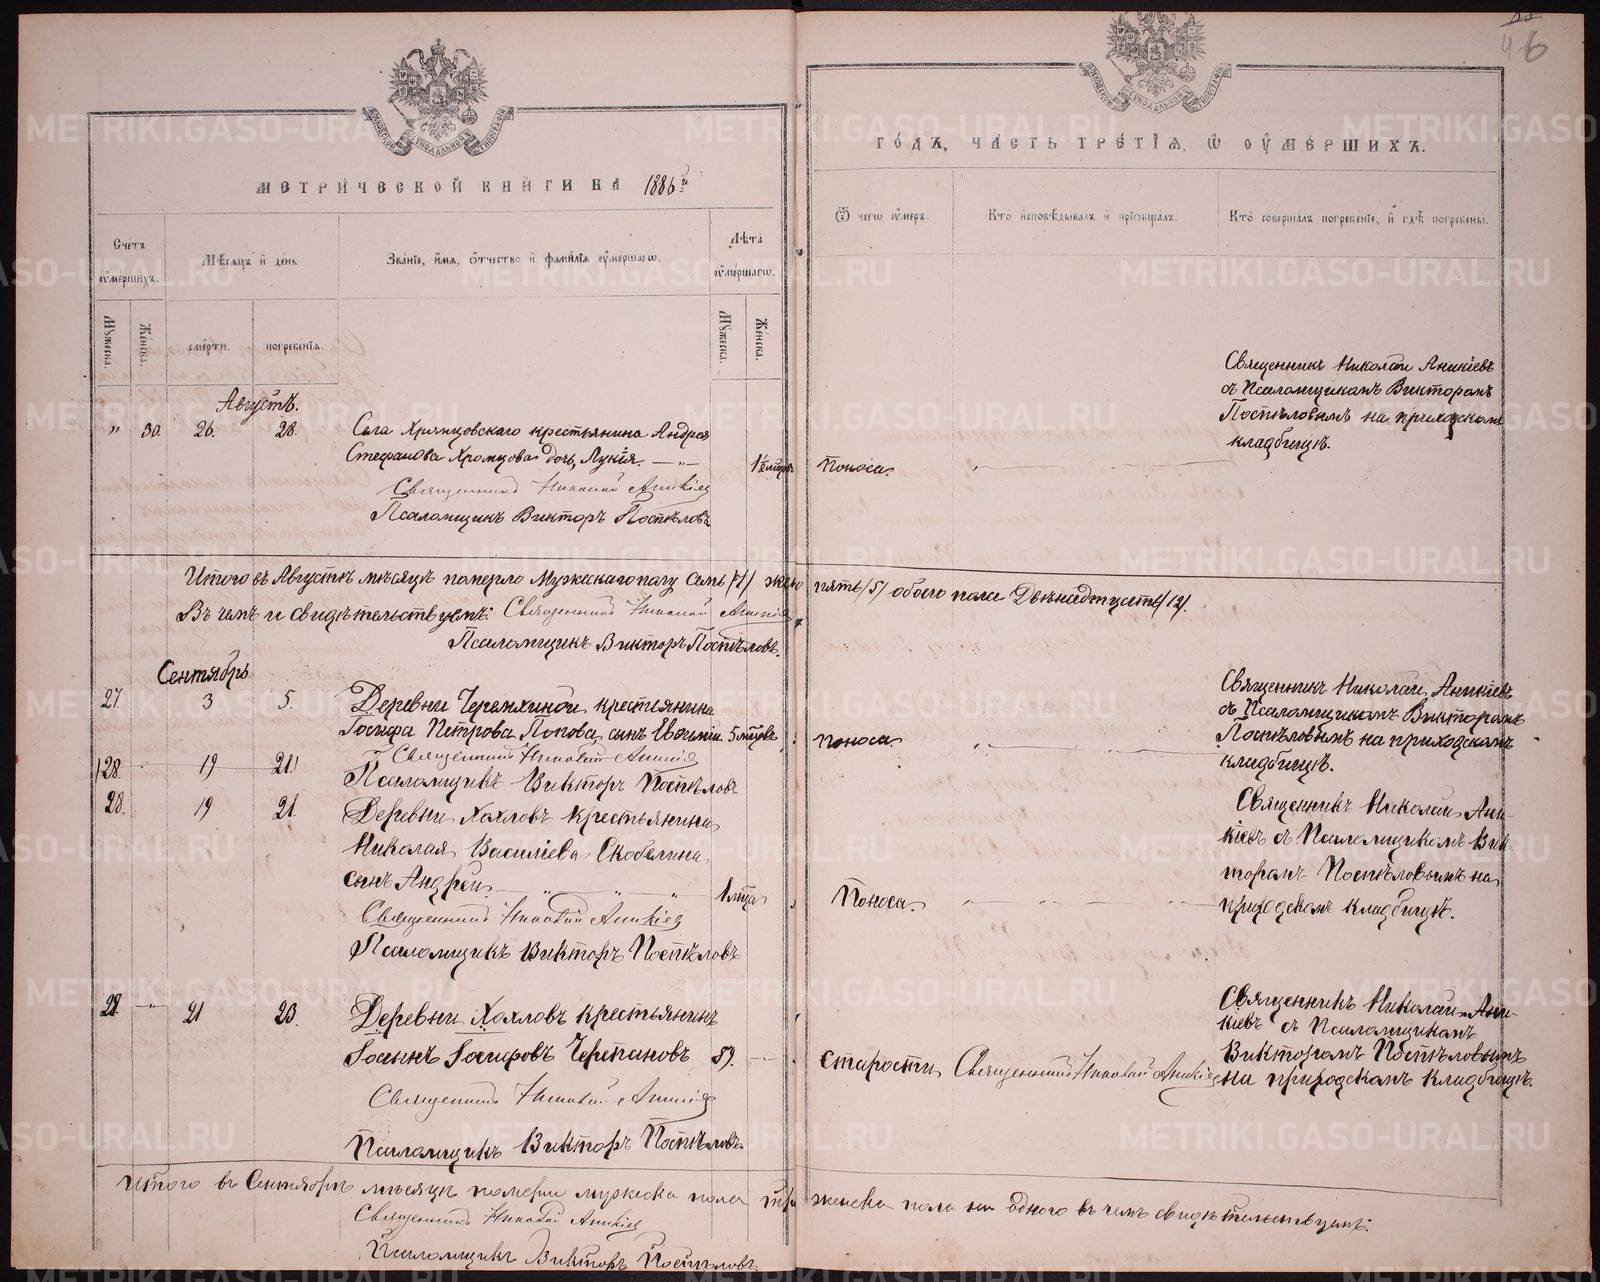 МЕТРИЧЕСКОЙ КНИГИ НА 1886 й
ГОДЪ, ЧАСТЬ ТРЕТІЯ, Ѡ ОУМЕРШИХЪ.
Счетъ оумершихъ.
Мѣсяцъ и день
Званіе, имя, отчество и фамилія оумершагѡ.
Лѣта оумершагѡ.
Ѿ чегѡ оумеръ.
Кто исповѣдывалъ и пріѡбщалъ.
Кто совершалъ погребеніе, и гдѣ погребены.
Мужеска.
Женска.
смерти.
погребенія.
Мужеска.
Женска.
Августъ.
" 30. 26. 28. Села Хромцовскаго крестьянина Андрея
Стефанова Хромцова дочь Лукія. — " —
Поноса.
Священникъ Николай Аникіевъ
съ Псаломщикомъ Викторомъ
Поспѣловымъ на приходскомъ
кладбищѣ.
Священникъ Николай Аникіев
Псаломщикъ Викторъ Поспѣловъ
Итого въ Августѣ мѣсяцѣ померло Мужескаго полу Семь /7/ жен пять /5/ обоего пола Двѣнадцать /12/.
Въ чемъ и свидѣтельствуемъ: Священникъ Николай Аникіев
Псаломщикъ Викторъ Поспѣловъ.
Сентябрь
27. 3 5. Деревни Черемхиной крестьянина
Іосифа Петрова Попова сынъ Евѳимій 5 мѣсцевъ
Поноса.
Священникъ Николай Аникіевъ
съ Псаломщикомъ Викторомъ
Поспѣловымъ на приходскомъ
кладбищѣ.
Священникъ Николай Аникіев
28. 19 21.
Псаломщикъ Викторъ Поспѣловъ
28. 19 21. Деревни Хохловъ крестьянина
Николая Василіева Скобелина
сынъ Андрей — " " " 1 мца
Поноса.
Священникъ Николай Ани-
кіевъ съ Псаломщикомъ Вик-
торомъ Поспѣловымъ на
приходскомъ кладбищѣ.
Священникъ Николай Аникіев
Псаломщикъ Викторъ Поспѣловъ
28. — " — 21 23. Деревни Хохловъ крестьянинъ
Іосифовъ Черепановъ 59.
Старости
Священникъ Николай Аникіев
Священникъ Николай Ани-
кіевъ съ Псаломщикомъ
Викторомъ Поспѣловымъ
на приходскомъ кладбищѣ.
Священникъ Николай Аникіев
Псаломщикъ Викторъ Поспѣловъ
Итого въ Сентябрѣ мѣсяцѣ померли мужеска пола три женска пола ни одного въ чемъ свидѣтельствуемъ:
Священникъ Николай Аникіев
Псаломщикъ Викторъ Поспѣловъ.
METRIKI.GASO-URAL.RU